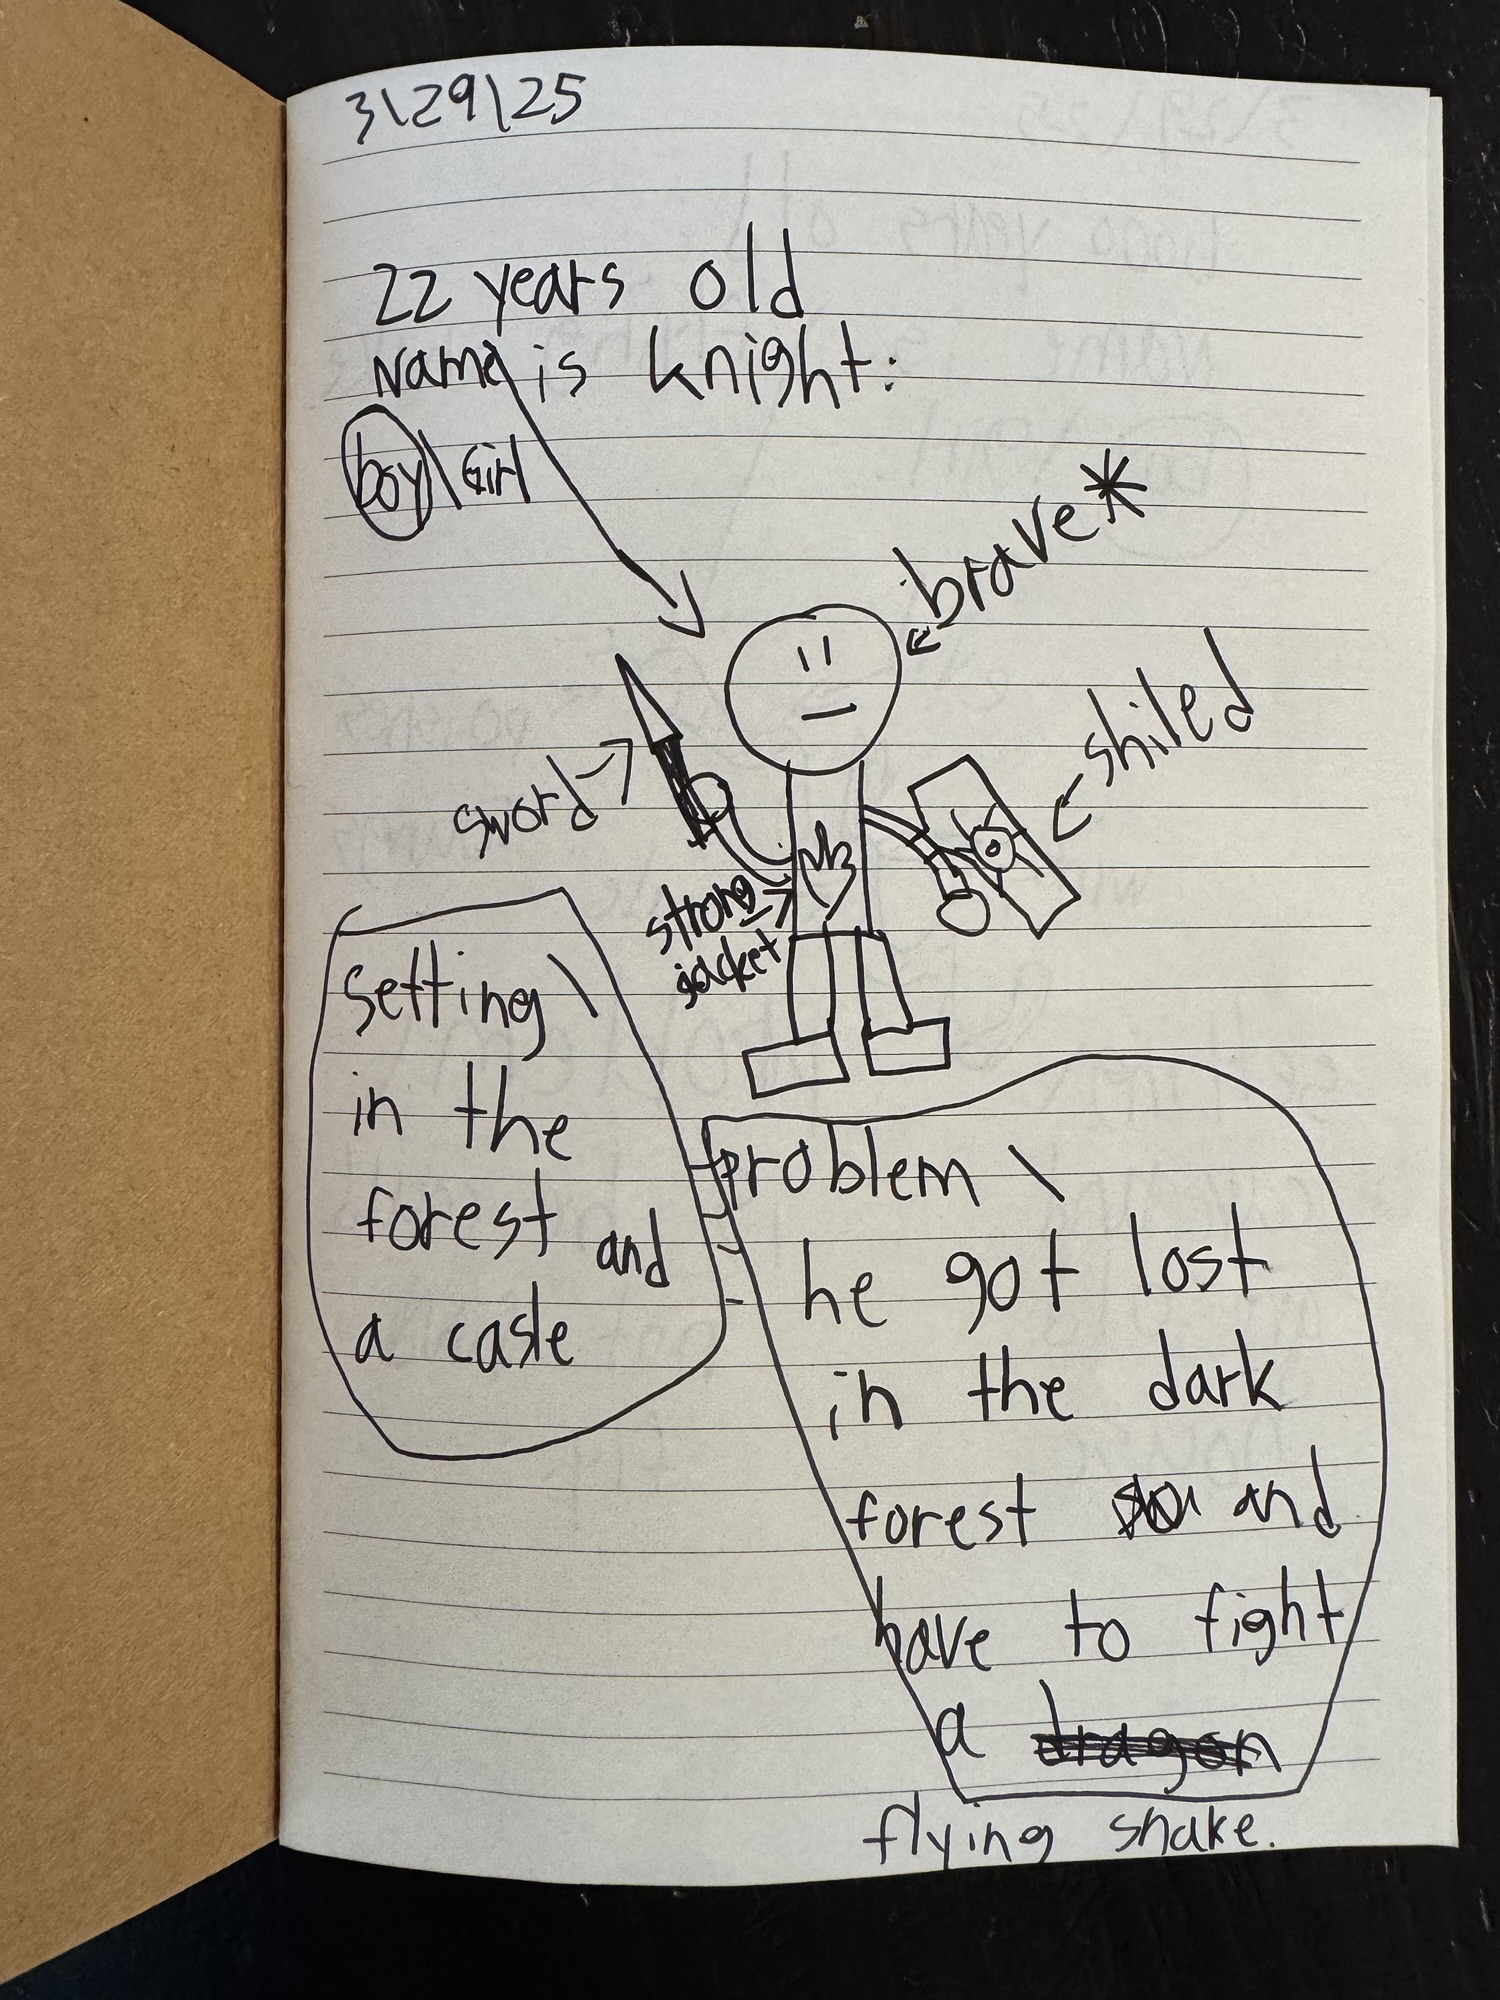 3\29\25
22 years old
Name is knight.
boy\Girl
brave*
shiled
sword
strong
jacket
setting\
in the
forest and
a casle
problem\
he got lost
in the dark
forest and
have to fight
a dragon
flying snake.